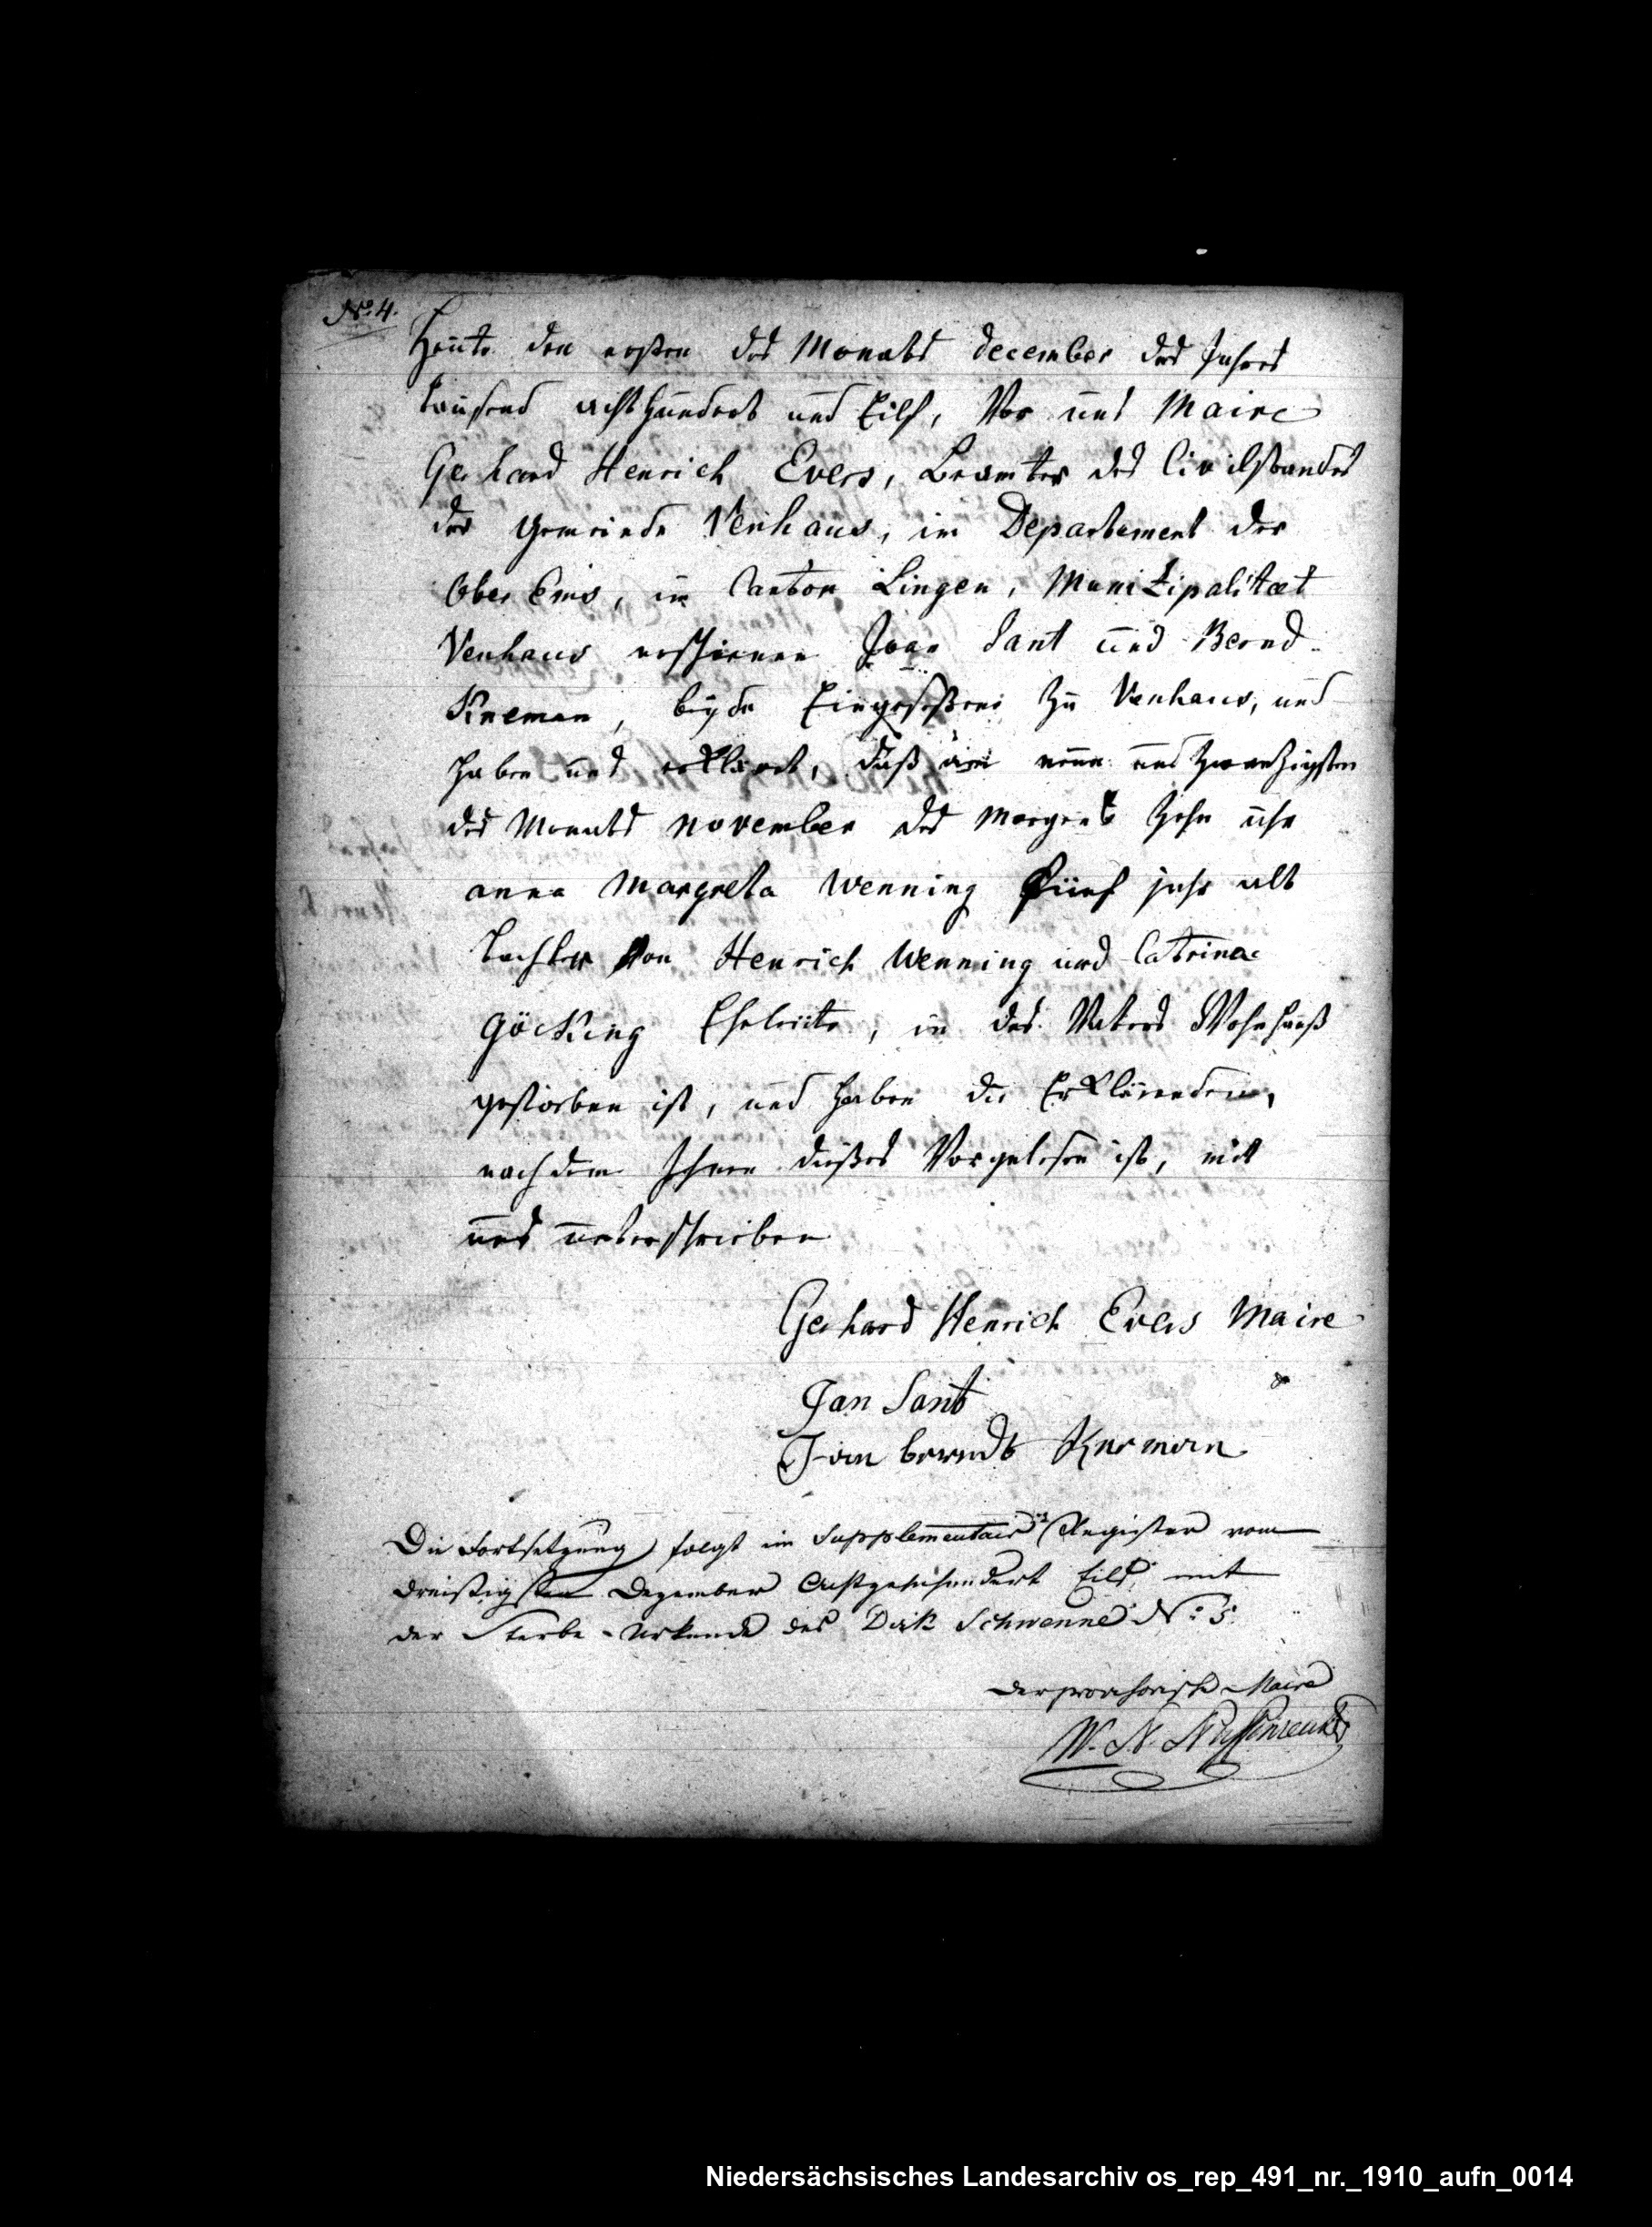 No. 4.
Heute den ersten des Monats december des Jahres
tausend acht hundert und Eilf, Vor uns Maire
Gerhard Henrich Evers, Beamter des Civilstandes
der Gemeinde Venhaus, im Departement der
Ober Ems, im Canton Lingen, Munizipalitæt
Venhaus erschienen Joan Sant und Bernd
Kneman, beyde Eingeseßene zu Venhaus, und
haben uns erklært, daß am neun und zwanzigsten
des Monats november des Morgens zehn uhr
anna Margreta Wenning fünf jahr alt
tochter Von Henrich Wenning und Catrina
Göcking Eheleüte, in des Vaters Wohnhauß
gestorben ist, und haben die Erklärenden,
nachdem Ihnen dießes Vorgelesen ist, mit
uns unterschrieben
Gerhard Henrich Evers Maire
Jan Sant
Jan berndt Kneman
Die Fortsetzung folgt im Supplementair Register vom
dreißigsten Dezember Achtzehnhundert Eilf, mit
der Sterbe-Urkunde des Dirk Schwenne No: 5.
der provisorische Maire
W. N.
Niedersächsisches Landesarchiv os_rep_491_nr._1910_aufn_0014